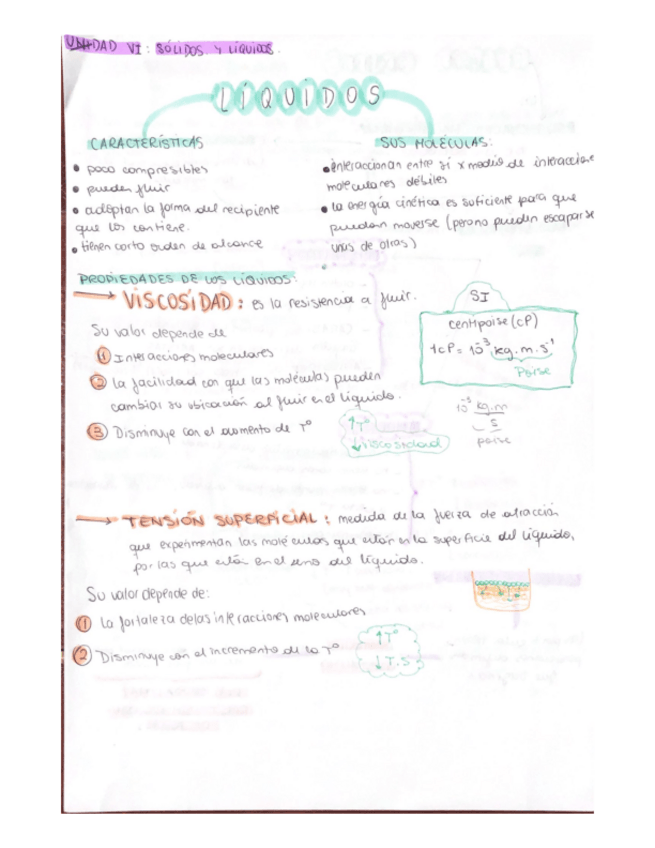 UNIDAD VI: SÓLIDOS Y LÍQUIDOS.
LÍQUIDOS
CARACTERÍSTICAS
• poco compresibles
• pueden fluir
• adoptan la forma del recipiente
que los contiene.
• tienen corto orden de alcance
SUS MOLÉCULAS:
• interaccionan entre sí x medio de interaccione
moleculares débiles
• la energía cinética es suficiente para que
puedan moverse (pero no pueden escaparse
unas de otras)
PROPIEDADES DE LOS LÍQUIDOS:
→ VISCOSIDAD: es la resistencia a fluir.
Su valor depende de
① Interacciones moleculares
② La facilidad con que las moléculas pueden
cambiar su ubicación al fluir en el líquido.
③ Disminuye con el aumento de Tº
↑Tº
↓viscosidad
SI
centipoise (cP)
1cP = 10⁻³ kg.m.s⁻¹
Poise
10⁻³ kg.m
s
poise
→ TENSIÓN SUPERFICIAL: medida de la fuerza de atracción
que experimentan las moléculas que están en la superficie del líquido,
por las que están en el seno del líquido.
Su valor depende de:
① La fortaleza de las interacciones moleculares
② Disminuye con el incremento de la Tº
↑Tº
↓T.S